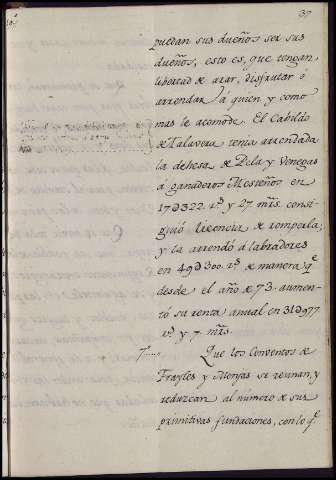 39
puedan sus dueños ser sus
dueños, esto es, que tengan
libertad de arar, disfrutar ó
arrendar á quien y como
mas le acomóde. El Cabildo
de Talavera tenia arrendada
la dehesa de Pila y Venegas
á ganaderos Mesteños en
17∂322 rs y 27 mrs. consi-
guió licencia de romperla,
y la arrendó a labradores
en 49∂300 rs de manera qe
desde el año de 73 aumen-
tó su renta anual en 31∂977
rs y 7 mrs.
7..... Que los Conventos de
Frayles y Monjas se reunan, y
reduzcan al número de sus
primitivas fundaciones, con lo qe